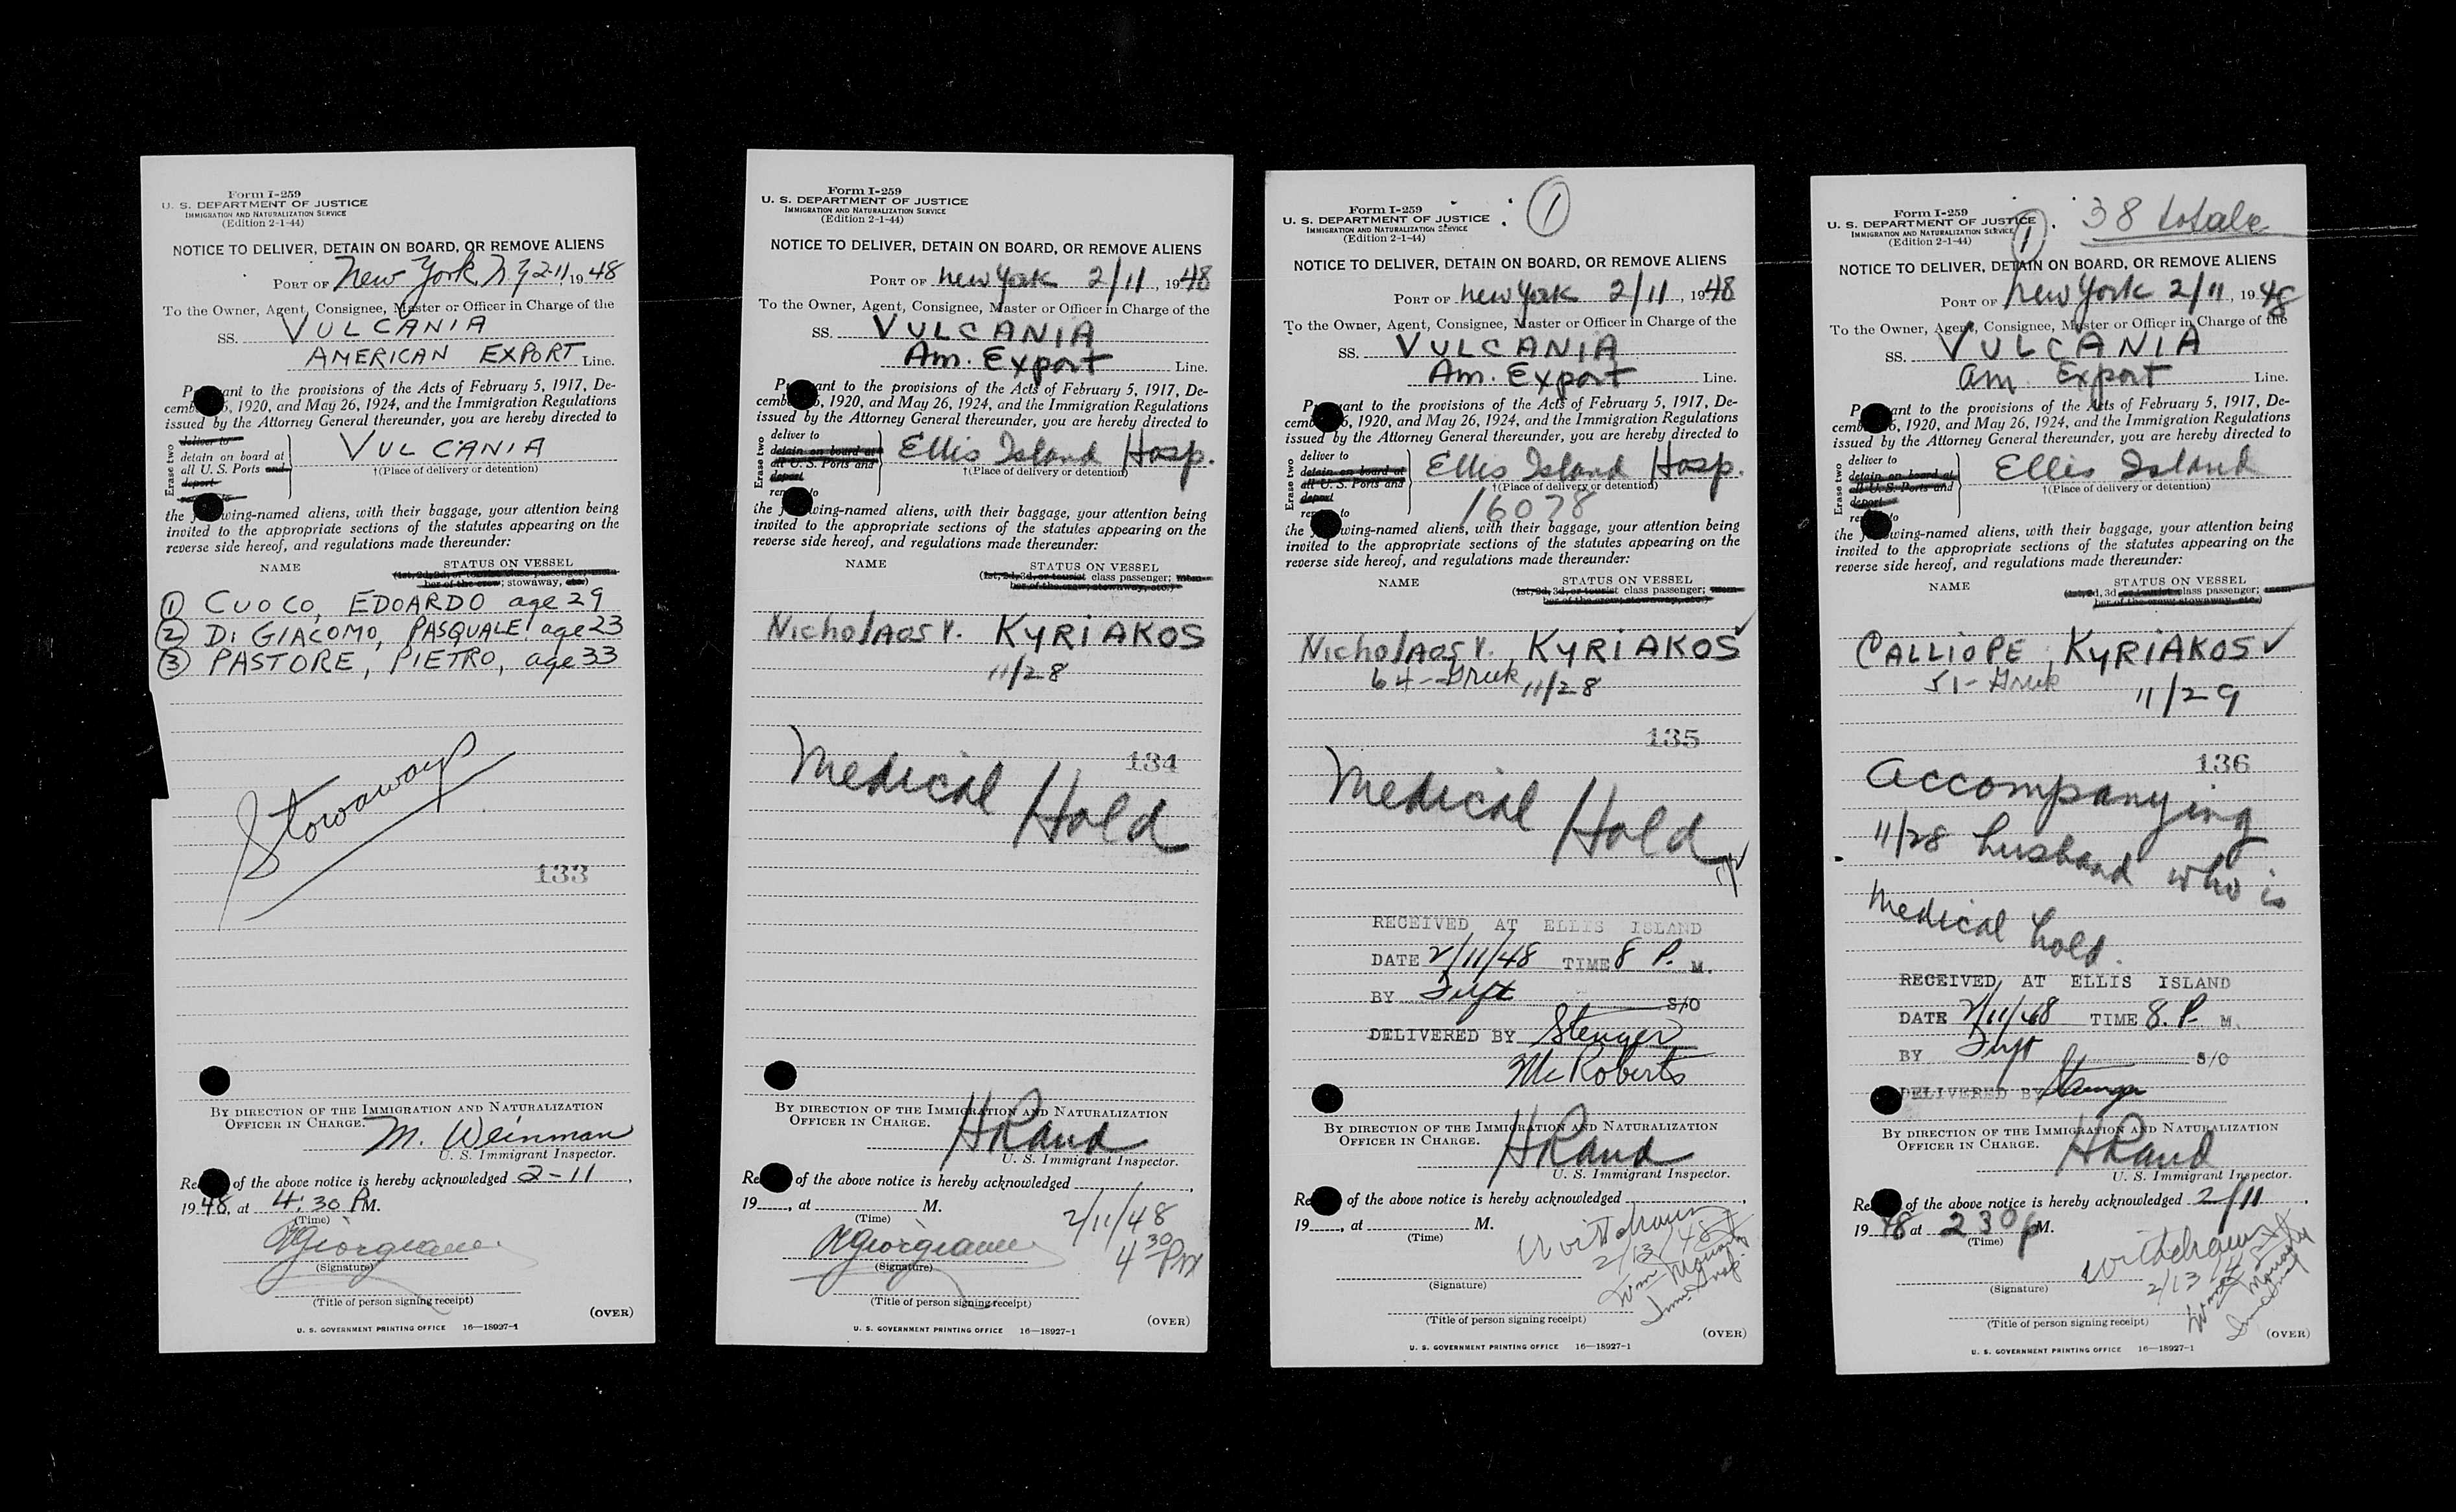 Form I-259
U. S. DEPARTMENT OF JUSTICE
IMMIGRATION AND NATURALIZATION SERVICE
(Edition 2-1-44)
NOTICE TO DELIVER, DETAIN ON BOARD, OR REMOVE ALIENS
PORT OF New York, N.Y. 2-11, 1948
To the Owner, Agent, Consignee, Master or Officer in Charge of the
SS. VULCANIA
AMERICAN EXPORT Line.
P ant to the provisions of the Acts of February 5, 1917, De-
cemb 5, 1920, and May 26, 1924, and the Immigration Regulations
issued by the Attorney General thereunder, you are hereby directed to
Erase two
deliver to
detain on board at
all U. S. Ports and
deport
VULCANIA
†(Place of delivery or detention)
the wing-named aliens, with their baggage, your attention being
invited to the appropriate sections of the statutes appearing on the
reverse side hereof, and regulations made thereunder:
NAME STATUS ON VESSEL
(1st, 2d, 3d, or tourist class passenger; mem-
ber of the crew; stowaway, etc.)
① CUOCO, EDOARDO age 29
② DI GIACOMO, PASQUALE age 23
③ PASTORE, PIETRO, age 33
Stowaways
133
BY DIRECTION OF THE IMMIGRATION AND NATURALIZATION
OFFICER IN CHARGE.
M. Weinman
U. S. Immigrant Inspector.
Re of the above notice is hereby acknowledged 2-11,
1948, at 4:30 PM.
(Time)
(Signature)
(Title of person signing receipt)
(OVER)
U. S. GOVERNMENT PRINTING OFFICE 16—18927-1
Form I-259
U. S. DEPARTMENT OF JUSTICE
IMMIGRATION AND NATURALIZATION SERVICE
(Edition 2-1-44)
NOTICE TO DELIVER, DETAIN ON BOARD, OR REMOVE ALIENS
PORT OF New York 2/11, 1948
To the Owner, Agent, Consignee, Master or Officer in Charge of the
SS. VULCANIA
Am. Export Line.
P ant to the provisions of the Acts of February 5, 1917, De-
cemb 5, 1920, and May 26, 1924, and the Immigration Regulations
issued by the Attorney General thereunder, you are hereby directed to
Erase two
deliver to
detain on board at
all U. S. Ports and
deport
re to
Ellis Island Hosp.
†(Place of delivery or detention)
the wing-named aliens, with their baggage, your attention being
invited to the appropriate sections of the statutes appearing on the
reverse side hereof, and regulations made thereunder:
NAME STATUS ON VESSEL
(1st, 2d, 3d, or tourist class passenger; mem-
ber of the crew; stowaway, etc.)
Nicholaos V. KYRIAKOS
11/28
134
Medical Hold
BY DIRECTION OF THE IMMIGRATION AND NATURALIZATION
OFFICER IN CHARGE.
H Rand
U. S. Immigrant Inspector.
Re of the above notice is hereby acknowledged
19 , at M.
(Time)
2/11/48
4 30 PM
(Signature)
(Title of person signing receipt)
(OVER)
U. S. GOVERNMENT PRINTING OFFICE 16—18927-1
①
Form I-259
U. S. DEPARTMENT OF JUSTICE
IMMIGRATION AND NATURALIZATION SERVICE
(Edition 2-1-44)
NOTICE TO DELIVER, DETAIN ON BOARD, OR REMOVE ALIENS
PORT OF New York 2/11, 1948
To the Owner, Agent, Consignee, Master or Officer in Charge of the
SS. VULCANIA
Am. Export Line.
P ant to the provisions of the Acts of February 5, 1917, De-
cemb 5, 1920, and May 26, 1924, and the Immigration Regulations
issued by the Attorney General thereunder, you are hereby directed to
Erase two
deliver to
detain on board at
all U. S. Ports and
deport
re to
Ellis Island Hosp.
†(Place of delivery or detention)
16078
the wing-named aliens, with their baggage, your attention being
invited to the appropriate sections of the statutes appearing on the
reverse side hereof, and regulations made thereunder:
NAME STATUS ON VESSEL
(1st, 2d, 3d, or tourist class passenger; mem-
ber of the crew; stowaway, etc.)
Nicholaos V. KYRIAKOS ✓
64 - Greek 11/28
135
Medical Hold
RECEIVED AT ELLIS ISLAND
DATE 2/11/48 TIME 8 P. M.
BY S/O
DELIVERED BY Stenger
McRoberts
BY DIRECTION OF THE IMMIGRATION AND NATURALIZATION
OFFICER IN CHARGE.
H Rand
U. S. Immigrant Inspector.
Re of the above notice is hereby acknowledged
19 , at M.
(Time)
Withdrawn
2/13/48
(Signature)
(Title of person signing receipt)
(OVER)
U. S. GOVERNMENT PRINTING OFFICE 16—18927-1
① 38 totale
Form I-259
U. S. DEPARTMENT OF JUSTICE
IMMIGRATION AND NATURALIZATION SERVICE
(Edition 2-1-44)
NOTICE TO DELIVER, DETAIN ON BOARD, OR REMOVE ALIENS
PORT OF New York 2/11, 1948
To the Owner, Agent, Consignee, Master or Officer in Charge of the
SS. VULCANIA
Am. Export Line.
P ant to the provisions of the Acts of February 5, 1917, De-
cemb 5, 1920, and May 26, 1924, and the Immigration Regulations
issued by the Attorney General thereunder, you are hereby directed to
Erase two
deliver to
detain on board at
all U. S. Ports and
deport
re to
Ellis Island
†(Place of delivery or detention)
the wing-named aliens, with their baggage, your attention being
invited to the appropriate sections of the statutes appearing on the
reverse side hereof, and regulations made thereunder:
NAME STATUS ON VESSEL
(1st, 2d, 3d or tourist class passenger; mem-
ber of the crew; stowaway, etc.)
CALLIOPE KYRIAKOS ✓
51 - Greek 11/29
136
Accompanying
11/28 husband who is
Medical hold.
RECEIVED AT ELLIS ISLAND
DATE 2/11/48 TIME 8. P. M.
BY S/O
DELIVERED BY Stenger
BY DIRECTION OF THE IMMIGRATION AND NATURALIZATION
OFFICER IN CHARGE.
H Rand
U. S. Immigrant Inspector.
Re of the above notice is hereby acknowledged 2/11,
1948 at 230 PM.
(Time)
Withdrawn
2/13/48
(Signature)
(Title of person signing receipt)
(OVER)
U. S. GOVERNMENT PRINTING OFFICE 16—18927-1